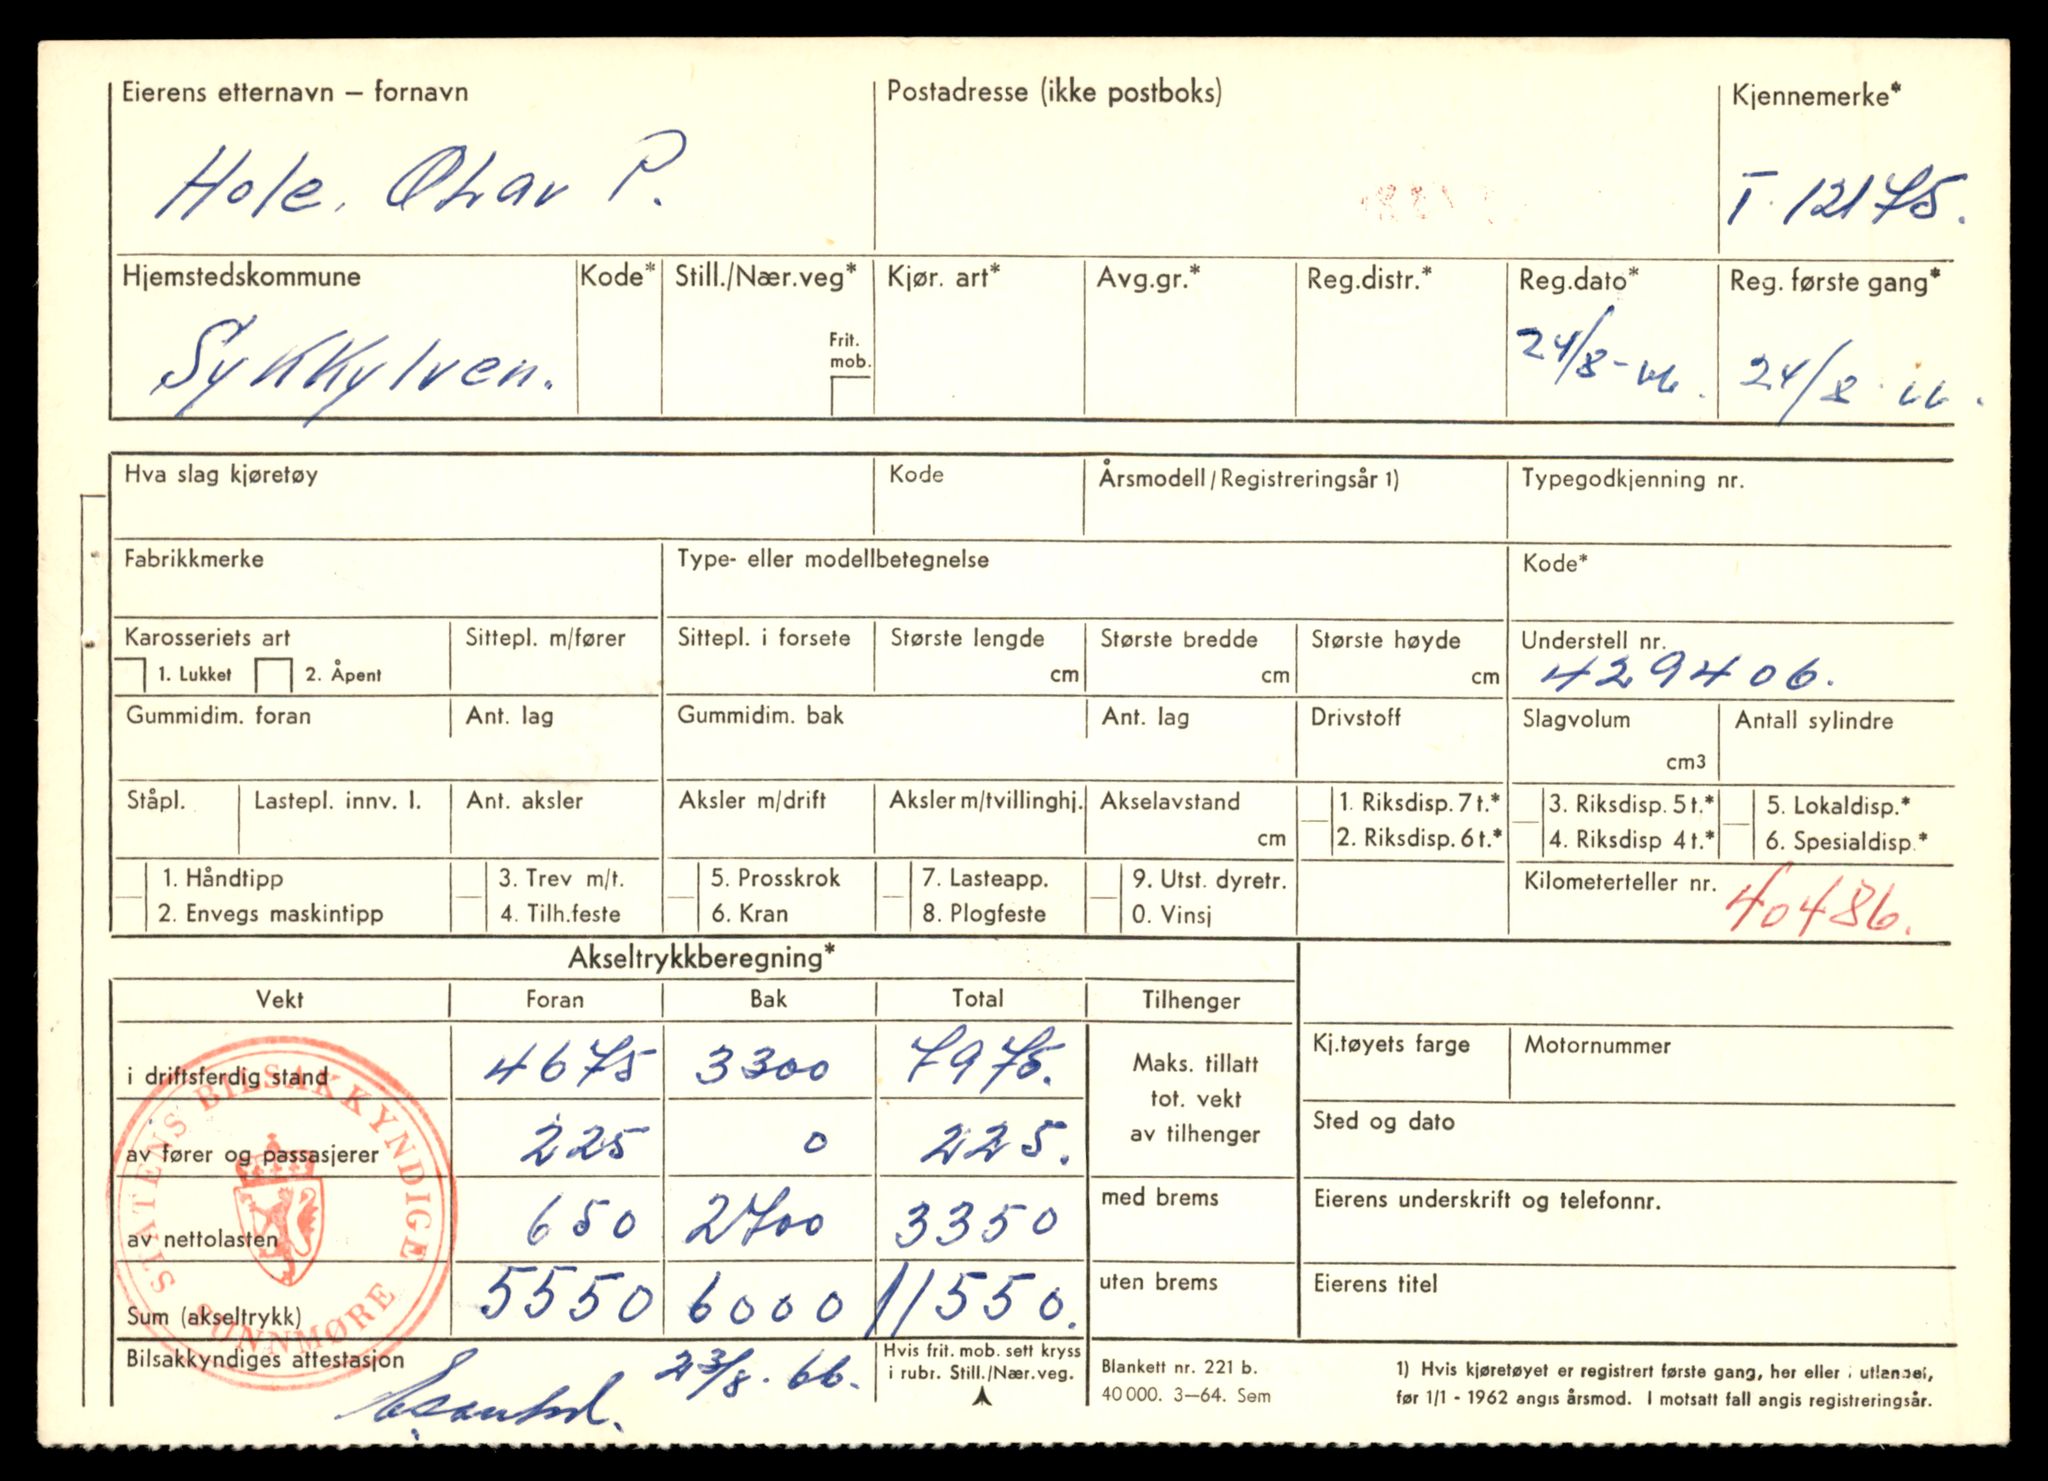 Eierens etternavn – fornavn
Postadresse (ikke postboks)
Kjennemerke*
Hole, Olav P.
T. 12175.
Hjemstedskommune
Kode*
Still./Nær.veg*
Kjør. art*
Avg.gr.*
Reg.distr.*
Reg.dato*
Reg. første gang*
Frit. mob.
Sykkylven.
24/8-66.
24/8-66.
Hva slag kjøretøy
Kode
Årsmodell/Registreringsår 1)
Typegodkjenning nr.
Fabrikkmerke
Type- eller modellbetegnelse
Kode*
Karosseriets art
Sittepl. m/fører
Sittepl. i forsete
Største lengde
Største bredde
Største høyde
Understell nr.
1. Lukket
2. Åpent
cm
cm
cm
429406.
Gummidim. foran
Ant. lag
Gummidim. bak
Ant. lag
Drivstoff
Slagvolum
Antall sylindre
cm3
Ståpl.
Lastepl. innv. l.
Ant. aksler
Aksler m/drift
Aksler m/tvillinghj.
Akselavstand
cm
1. Riksdisp. 7 t.*
2. Riksdisp. 6 t.*
3. Riksdisp. 5 t.*
4. Riksdisp 4 t.*
5. Lokaldisp.*
6. Spesialdisp.*
1. Håndtipp
2. Envegs maskintipp
3. Trev m/t.
4. Tilh.feste
5. Prosskrok
6. Kran
7. Lasteapp.
8. Plogfeste
9. Utst. dyretr.
0. Vinsj
Kilometerteller nr.
40486.
Akseltrykkberegning*
Vekt
Foran
Bak
Total
Tilhenger
i driftsferdig stand
4675
3300
7975.
Maks. tillatt
tot. vekt
av tilhenger
Kj.tøyets farge
Motornummer
av fører og passasjerer
225
0
225.
Sted og dato
av nettolasten
650
2700
3350
med brems
Eierens underskrift og telefonnr.
Sum (akseltrykk)
5550
6000
11550.
uten brems
Eierens titel
STATENS BILSAKKYNDIGE
SUNNMØRE
Bilsakkyndiges attestasjon
23/8. 66.
Hvis frit. mob. sett kryss
i rubr. Still./Nær.veg.
Blankett nr. 221 b.
40 000. 3–64. Sem
1) Hvis kjøretøyet er registrert første gang, her eller i utlandet,
før 1/1 - 1962 angis årsmod. I motsatt fall angis registreringsår.